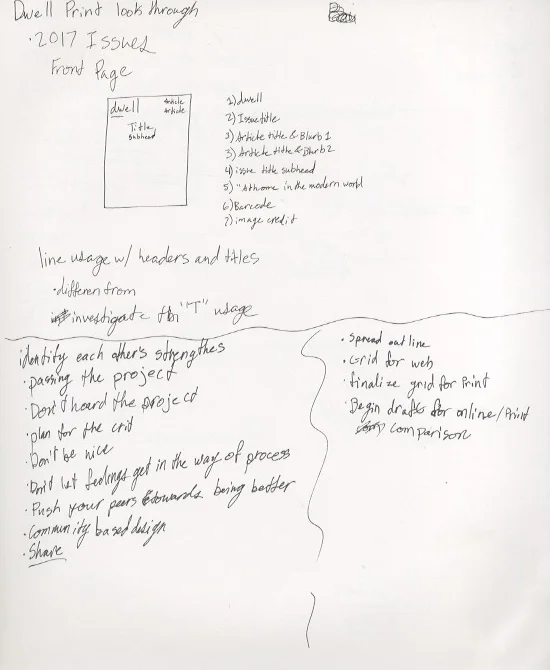 Dwell Print look through
· 2017 Issues
Front Page
dwell
Article
Article
Title
Subhead
1) dwell
2) Issue title
3) Article title & Blurb 1
3) Article title & Blurb 2
4) issue title subhead
5) "At home in the modern world
6) Barcode
7) image credit
line usage w/ headers and titles
· differen from
investigate "T" usage
identify each other's strengthes
· passing the project
· Don't hoard the project
· plan for the crit
· Don't be nice
· Don't let feelings get in the way of process
· Push your peers towards being better
· Community based design
· Share
· Spread outline
· Grid for web
· finalize grid for Print
· Begin drafts for online/Print
comparison